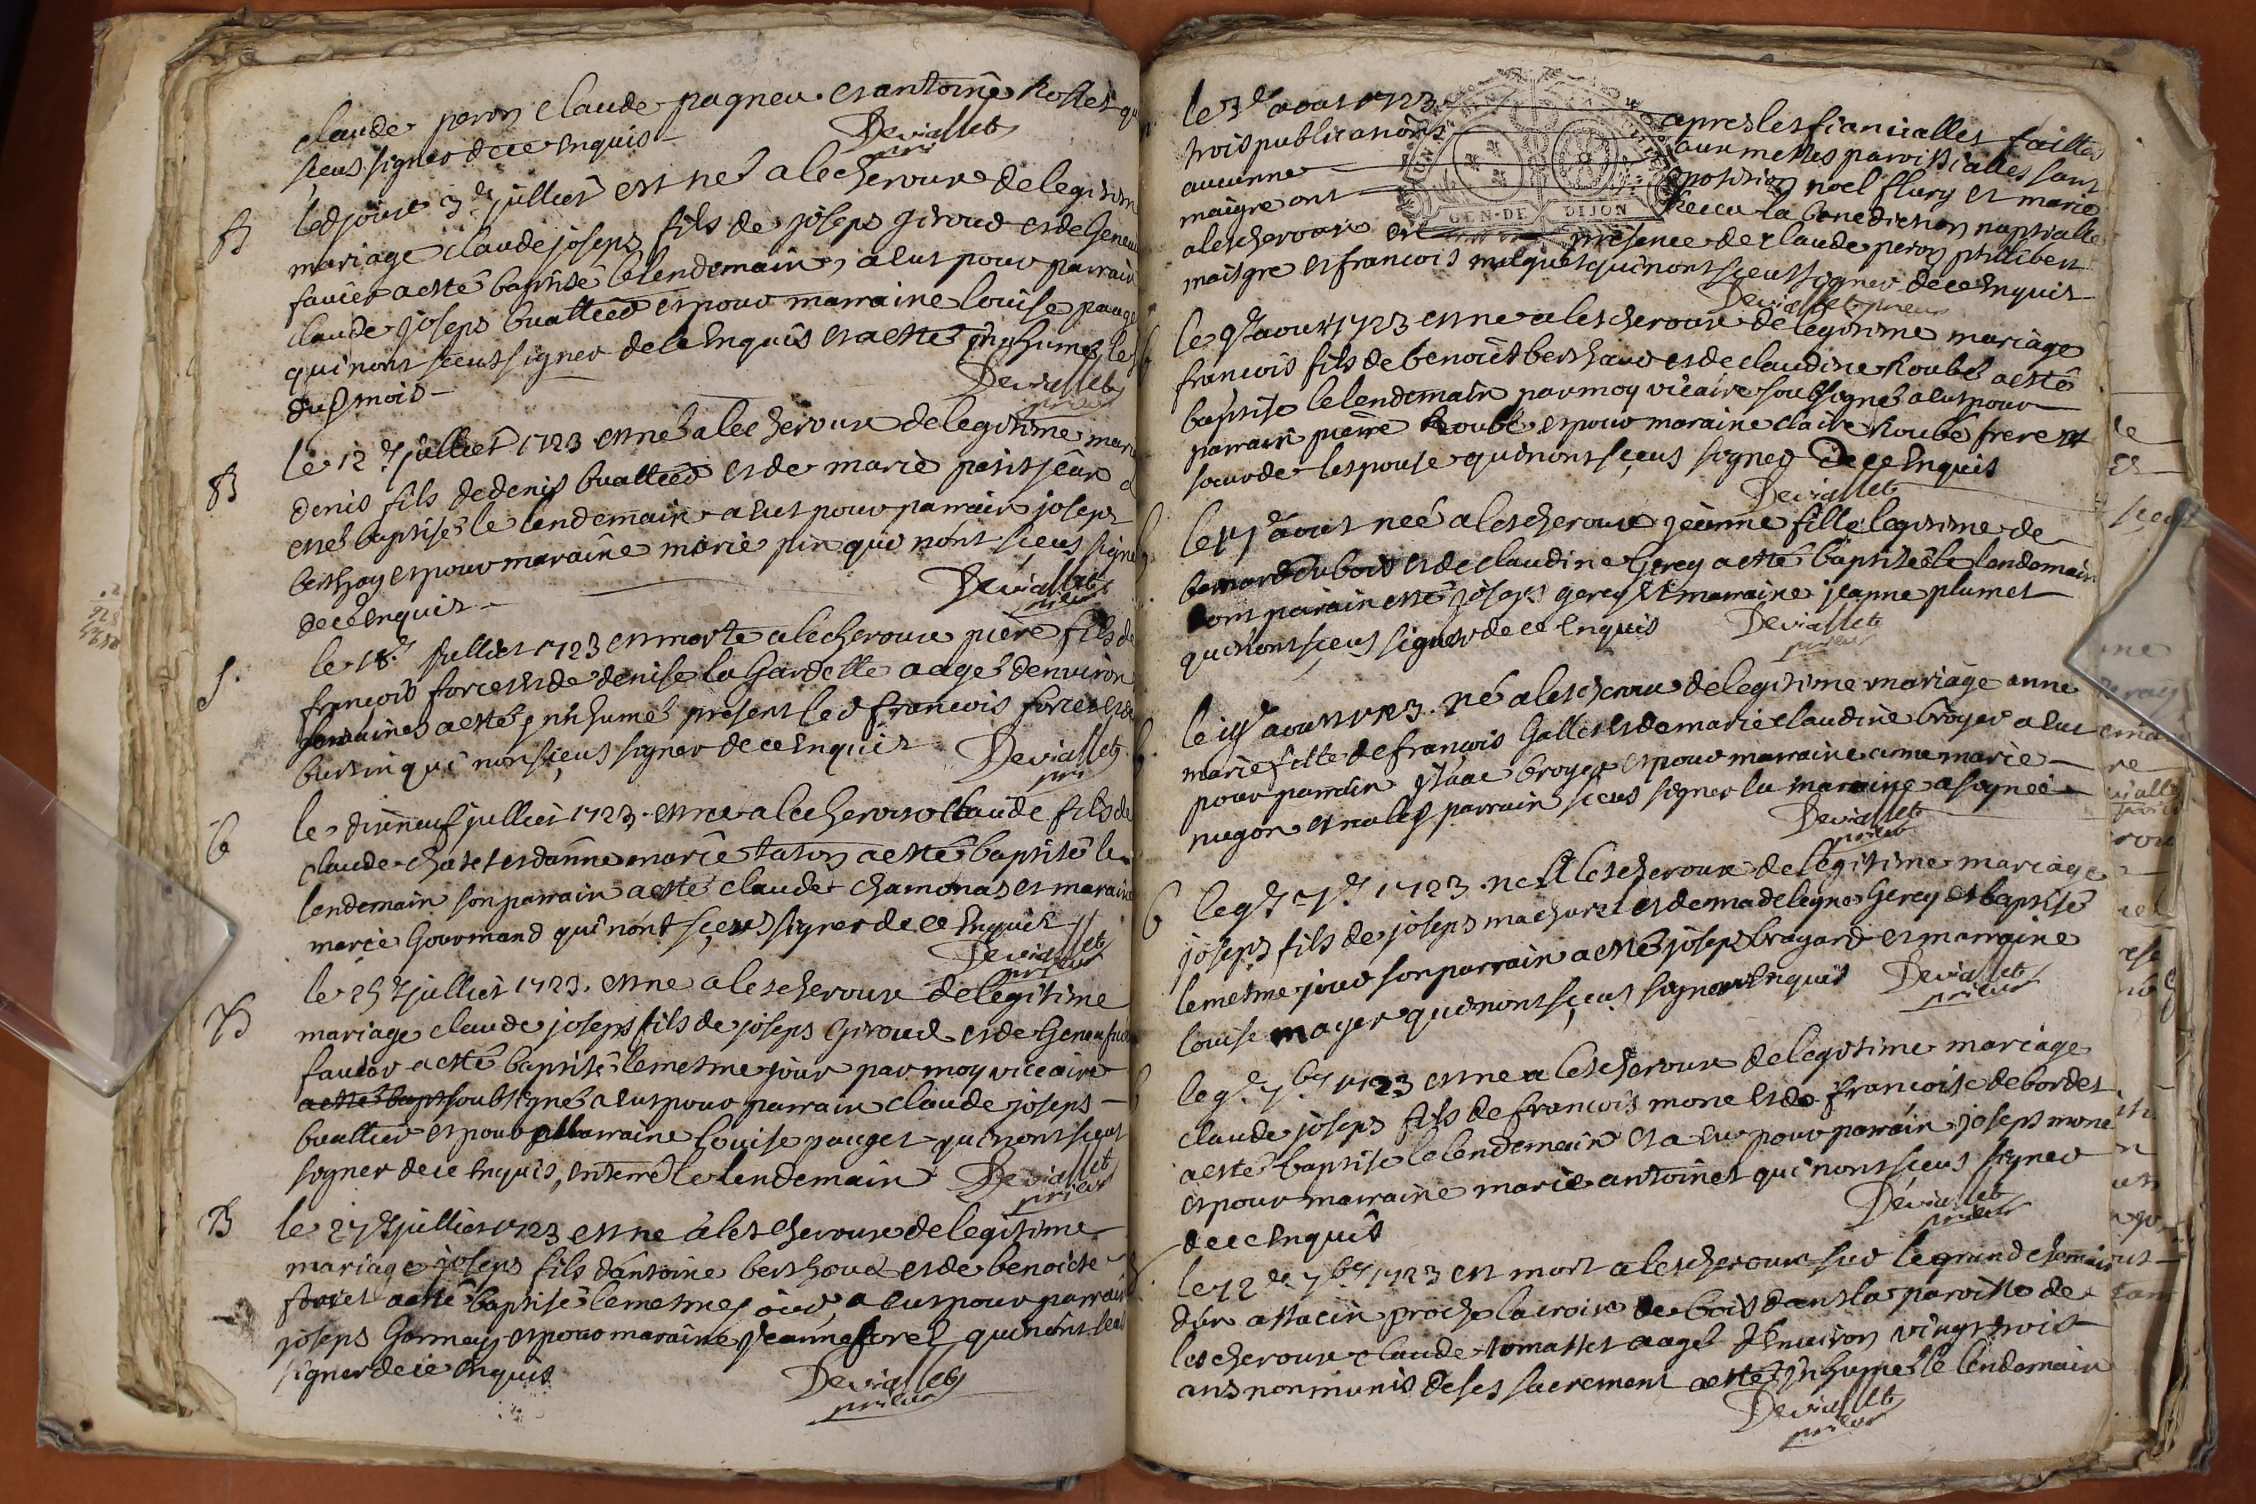 claude peron claude pagneu et antoine Rollet qu
sceus signer de ce Enquis
Deviallet
prieur
B
ledjour 3e julliet est né a lecheroux de legitim
mariage claude joseph fils de joseph giroud et de Genev
favier a esté baptisé le lendemain, a eut pour parrain
claude joseph buattier et pour marraine louise pauget
qui nont sceut signer de ce Enquis et a esté inhumé le
dud mois
Deviallet
prieur
B
le 12e julliet 1723 est né a lecheroux de legitime mari
denis fils de denis buattier et de marie petitjean a
esté baptisé le lendemain a eut pour parrain joseph
berthoy et pour maraine marie pin qui nont sceus signe
de ce Enquis
Deviallet
prieur
S.
le 18e julliet 1723 est morte a lecheroux piere fils de
francois forest et de denise la Gardette aagé denviron
semaines a esté inhumé present led francois forest et de
burtin qui nont sceus signer de ce Enquis
Deviallet
pri
B
le dixneuf julliet 1723 est né a lecheroux claude fils de
claude chatet et danne marie taton a esté baptisé le
lendemain son parrain a esté claude chamonas et maraine
marie Gourmand qui nont sceus signer de ce Enquis
Deviallet
prieur
B
le 25e julliet 1723. est né a lescheroux de legitime
mariage claude joseph fils de joseph Giroud et de Genev
favier a esté baptisé le mesme jour par moy viceaire
a esté bapt soubsigné a eut pour parrain claude joseph
buattier et pour marraine louise pauget qui nont sceut
signer de ce Enquis, enterré le lendemain
Deviallet
prieur
B
le 27e julliet 1723 est né a lescheroux de legitime
mariage joseph fils dantoine berthoud et de benoicte
foret a esté baptisé le mesme jour, a eut pour parrain
joseph Gormay et pour maraine jeanne forel qui nont sceu
signer de ce Enquis
Deviallet
prieur
le 3e aoust 1723 apres les fiancialles faittes
trois publications aux messes paroissialles sans
aucunne oposition noel flury et marie
maigre ont Receu la benediction nuptialle
GEN·DE DIJON
a lescheroux en presence de claude peron philibert
maigre et francois miquet qui nont sceut signer de ce Enquis
Deviallet prieur
le 9e aoust 1723 est né a lescheroux de legitime mariage
francois fils de benoict berthaud et de claudine Roube a esté
baptisé le lendemain par moy vicaire soubsigné a eut pour
parrain pierre Roube et pour maraine claire Roube frere et
sœur de lespouse qui nont sceus signer de ce Enquis
Deviallet
le 17e aoust née a lescheroux jeanne fille legitime de
bernard dubois et de claudine Gerey a esté baptisée le lendemain
son parrain esté joseph gerey et marraine jeanne plumet
qui nont sceus signer de ce Enquis
Deviallet
prieur
le 19e aoust 1723. né a lescheroux de legitime mariage anne
marie fille de francois Gallet et de marie claudine broyer a eut
pour parrain isaac broyer et pour marraine anne marie
nugon et na led parrain sceus signer la maraine a signéé
Deviallet
prieur
B
le 9e 7bre 1723. né a lescheroux de legitime mariage
joseph fils de joseph machuret et de madeleyne Gerey et baptisé
le mesme jour son parrain a esté joseph bragard et marraine
louise mayer qui nont sceus signer Enquis
Deviallet
prieur
le 9e 7bre 1723 est né a lescheroux de legitime mariage
claude joseph fils de francois mone et de francoise debordet
a esté baptisé le lendemain et a eu pour parrain joseph mone
et pour marraine marie antoinet qui nont sceus signer
de ce Enquis
Deviallet
prieur
le 12e 7bre 1723 est mort a lescheroux sur le grand chemin
proche la croix de bois dans la paroisse de
lescheroux claude tomasset aagé denviron vingt trois
ans non munis de ses sacrement a esté inhumé le lendemain
Deviallet
prieur